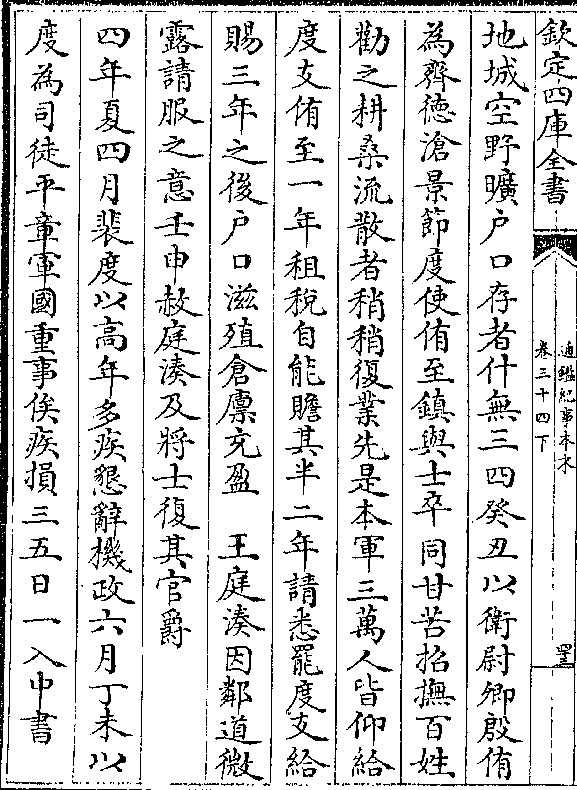 欽定四庫全書
通鑑紀事本末
卷三十四下
地城空野曠户口存者什無三四癸丑以衛尉卿殷侑
為齊徳滄景節度使侑至鎮與士卒同甘苦招撫百姓
勸之耕桑流散者稍稍復業先是本軍三萬人皆仰給
度支侑至一年租稅自能贍其半二年請悉罷度支給
賜三年之後户口滋殖倉廪充盈　王庭湊因鄰道微
露請服之意壬申赦庭湊及將士復其官爵
四年夏四月裴度以高年多疾懇辭機政六月丁未以
度為司徒平章軍國重事俟疾損三五日一入中書